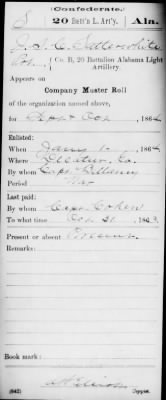 (Confederate.)
S 20 Batt'n L. Art'y. Ala.
J. S. C. Satterwhite
Co. B, 20 Battalion Alabama Light
Artillery.
Appears on
Company Muster Roll
of the organization named above,
for Sept & Oct, 186
Enlisted:
When 186
Where Decatur, Co.
By whom Capt.
Period War
Last paid:
By whom Capt Cohen
To what time Oct 31, 186
Present or absent Present
Remarks:
Book mark:
(642) Copyist.